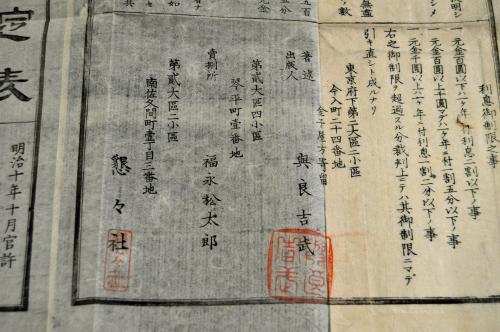 明シ
シメ
無盡
ノ數
利息御制限之事
一元金百圓以下ハ一ケ年ニ付利息二割以下ノ事
一元金百圓以上千圓マデハ一ケ年ニ付一割五分以下ノ事
一元金千圓以上ハ一ケ年ニ付利息一割二分以下ノ事
右之御制限ヲ超過スル分裁判上ニテハ其御制限ニマデ
引キ直シト成ルナリ
東京府下第二大區二小區
今入町二十四番地
金子屋方寄留
著述
出版人
與良吉武
第貳大區四小區
琴平町壹番地
福永松太郎
賣捌所
第貳大區二小區
南佐久間町壹丁目三番地
懇々社
定表
明治十年十月官許